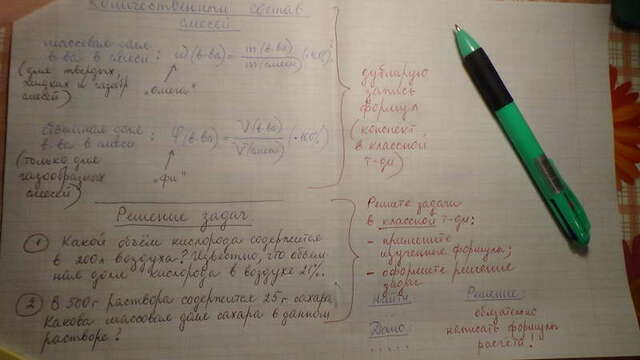 Количественный состав
смесей.
массовая доля
в-ва в смеси : ω(в-ва) = m(в-ва) / m(смеси) (·100%)
(для твердых,
жидких и газообр
смесей)
„омега"
объёмная доля
в-ва в смеси : φ(в-ва) = V(в-ва) / V(смеси) (·100%)
(только для
газообразных
смесей)
„фи"
дублирую
запись
формул
(конспект
в классной
т-ди)
Решение задач.
1 Какой объём кислорода содержится
в 200л воздуха? Известно, что объем
ная доля кислорода в воздухе 21%.
2 В 500г раствора содержится 25г сахара.
Какова массовая доля сахара в данном
растворе?
Решите задачи
в классной т-ди:
- примените
изученные формулы;
- оформите решение
задач
Найти: Решение:
Дано: обязательно
написать формулы
расчёта!